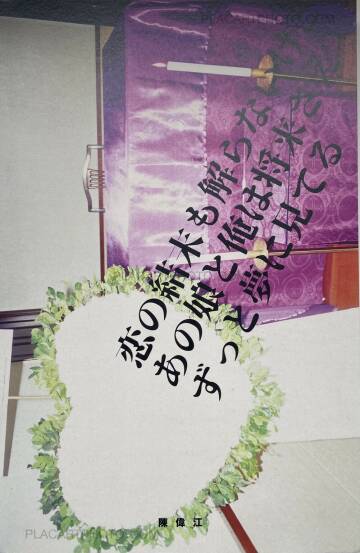 恋の結末も解らないけど
あの娘と俺は将来さえ
ずっと夢に見てる
陳偉江